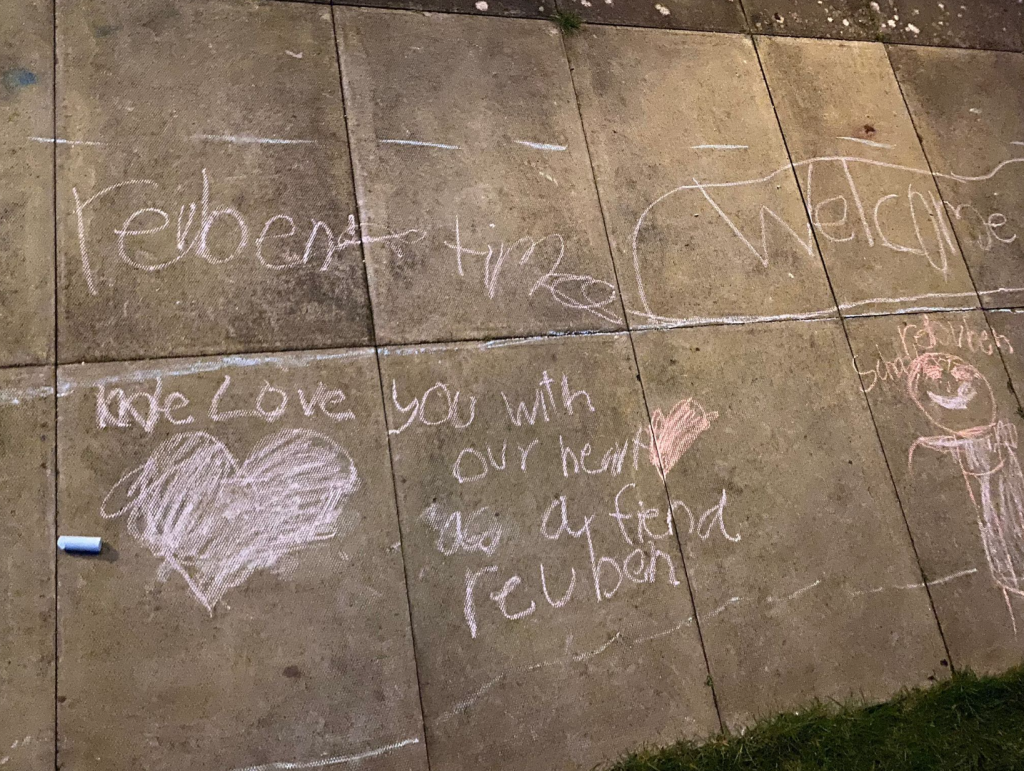 reuben
Welcome
we Love you with
our heart
as a friend
reuben
reuben